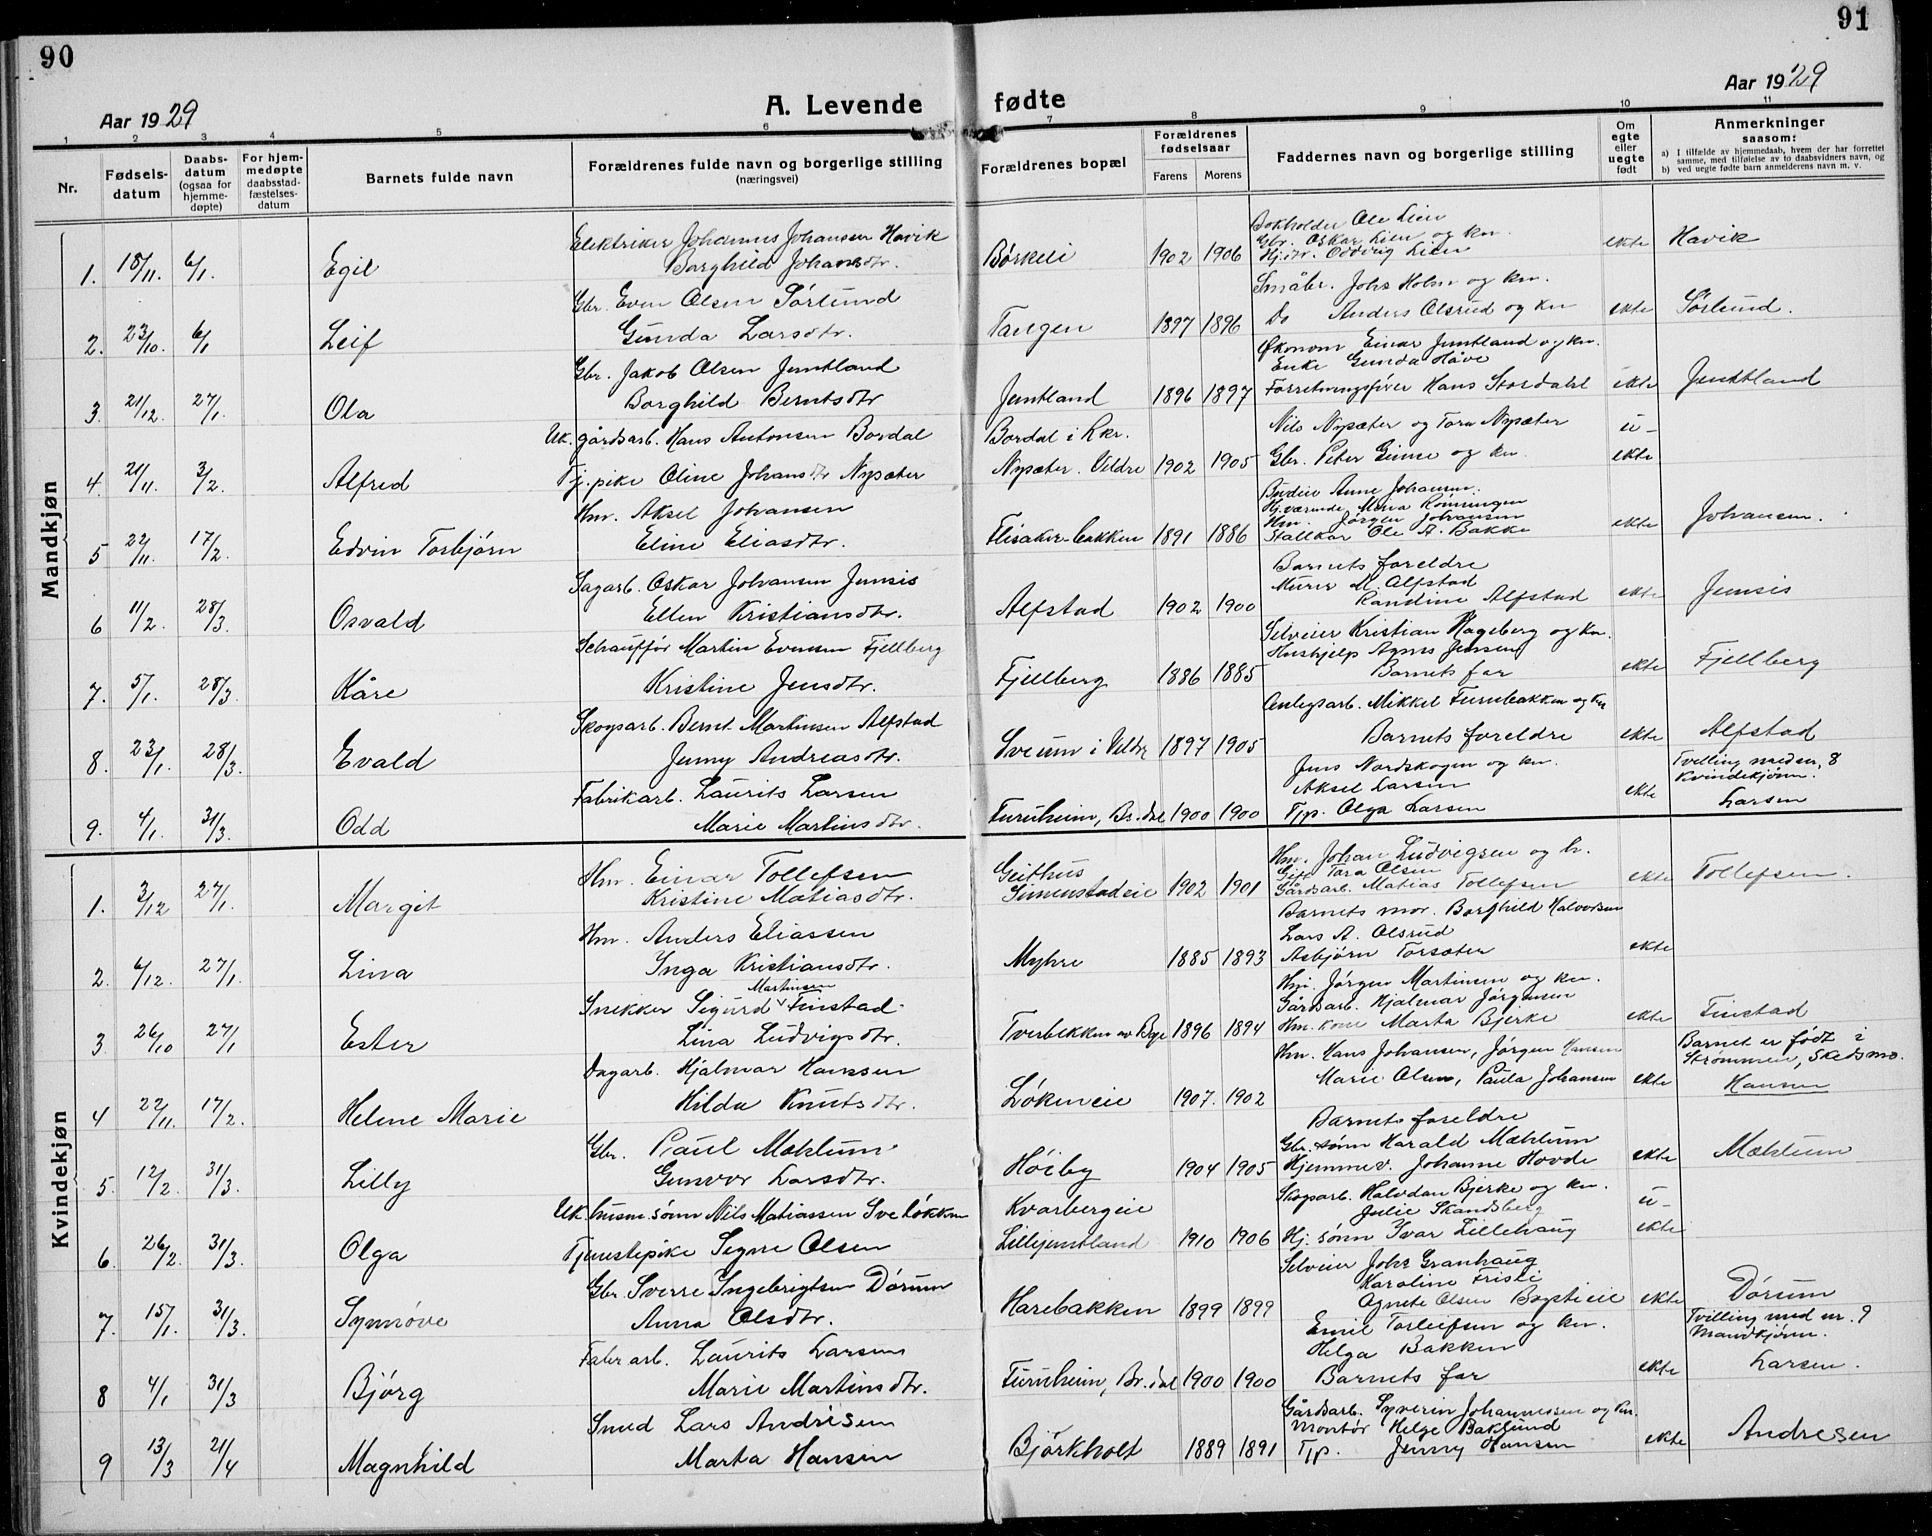 90
91
Aar 1929
A. Levende fødte
Aar 1929
1 2 3 4 5 6 7 8 9 10 11
Nr.
Fødsels-
datum
Daabs-
datum
(ogsaa for
hjemme-
døpte)
For hjem-
medøpte
daabsstad-
fæstelses-
datum
Barnets fulde navn
Forældrenes fulde navn og borgerlige stilling
(næringsvei)
Forældrenes bopæl
Forældrenes
fødselsaar
Farens Morens
Faddernes navn og borgerlige stilling
Om
egte
eller
uegte
født
Anmerkninger
saasom:
a) I tilfælde av hjemmedaab, hvem der har forrettet
samme, med tilføielse av to daabsvidners navn, og
b) ved uegte fødte barn anmelderens navn m. v.
Mandkjøn
Elektriker Johannes Johansen Havik
Bokholder Ole Lien
Gbr. Oskar Lien og kn.
1. 18/11. 6/1. Egil Borghild Johansdtr. Børkeli 1902 1906 Hj.dtr. Oddvig Lien ekte Havik
Gbr. Even Olsen Sörlund
Småbr. Johs Holm og kn.
2. 23/10. 6/1 Leif Gunda Larsdtr. Tangen 1897 1896 Do Anders Olsrud og kn ekte Sørlund.
Gbr. Jakob Olsen Jemtland
Økonom Einar Jemtland og kn.
Enke Gunda Håve
3 21/12. 27/1. Ola Borghild Berntsdtr Jemtland 1896 1897 Forretningsfører Hans Stordahl ekte Jemtland
Uk. gårdsarb. Hans Antonsen Bordal Bordal i Rkr. Nils Nysæter og Tora Nysæter u-
4. 21/11. 3/2. Alfred Tj. pike Oline Johansdtr Nysæter Nysæter. Veldre 1902 1905 Gbr. Peter Geime og kn. ekte
Hm. Aksel Johansen
Budeie Anne Johansen.
Hj.værende Mina Römringen
Hm. Jörgen Johansen
5 22/11. 17/2. Edvin Torbjörn Eline Eliasdtr. Flisaker-bakken 1891 1886 Stallkar Ole A. Bakke ekte Johansen.
Sagarb. Oskar Johansen Jemsis
Barnets foreldre
Murer M. Alfstad
6 11/2. 28/3. Osvald Ellen Kristiansdtr. Alfstad 1902 1900 Randine Alfstad ekte Jemsis
Schauffør Martin Evensen Fjellberg
Selveier Kristian Hageberg og kn.
Hushjelp Agnes Jensen
7. 5/1. 28/3. Kåre Kristine Jensdtr. Fjellberg 1886 1885 Barnets far ekte Fjellberg
Skogsarb. Bernt Martinsen Alfstad
Anlegsarb. Mikkel Furubakken og kn
8. 23/1. 28/3. Evald Jenny Andreasdtr. Sveum i Veldre 1897 1905 Barnets foreldre ekte Alfstad
Fabrikarb. Laurits Larsen
Jens Nordskogen og kn.
Aksel Larsen
Tvilling med nr. 8
Kvindekjønn.
9. 4/1. 31/3. Odd Marie Martinsdtr. Furuheim, Br.dal 1900 1900 Tjp. Olga Larsen ekte Larsen
Kvindekjøn
Hm. Einar Tollefsen
Geithus
Hm. Johan Ludvigsen og h.
Gift Tora Olsen
1. 3/12 27/1. Margit Kristine Matiasdtr. Simenstadeie 1902 1901 Gårdsarb. Matias Tollefsen ekte Tollefsen.
Hm. Anders Eliassen
Barnets mor. Borghild Halvorsen
Lars A. Olsrud
2. 6/12. 27/1. Lina Inga Kristiansdtr. Myhre 1885 1893 Asbjörn Torsæter ekte
Snekker Sigurd Martinsen Finstad
Hm. Jörgen Martinsen og kn.
Gårdsarb. Hjalmar Jörgensen
3 26/10 27/1 Ester Lina Ludvigsdtr. Tverbekken av Bye 1896 1894 Hm. kone Marta Bjerke ekte Finstad
Dagarb. Hjalmar Hanssen
Hm. Hans Johansen, Jörgen Hansen
Barnet er født i
Strømmen, Skedsmo.
4 22/11. 17/2. Helene Marie Hilda Knutsdtr. Løkeneie 1907. 1902 Marie Olsen, Paula Johansen ekte Hansen
Gbr. Paul Mæhlum
Barnets foreldre
Gbr. sønn Harald Mæhlum
5. 12/2. 31/3. Lilly Gunvor Larsdtr. Höiby 1904 1905 Hjemmev. Johanne Hovde ekte Mæhlum
Uk. husm. sönn Nils Matiassen Sveløkken Kvarbergeie
Skogsarb. Halvdan Bjerke og kn.
Julie Skandsberg u-
6. 26/2. 31/3. Olga Tjenestepike Signe Olsen Lillejemtland 1910 1906 Hj. sönn Ivar Lillehaug ekte
Gbr. Sverre Ingebrigtsen Dórum
Selveier Johs Granhaug
Karoline Fristi
7. 15/1. 31/3. Synnöve Anna Olsdtr. Harebakken 1899 1899 Agnete Olsen Bøstieie ekte Dórum
Fabr arb. Laurits Larsen
Emil Torleifsen og kn.
Helga Bakken
Tvilling med nr. 9
Mandkjønn.
8 4/1 31/3 Bjørg Marie Martinsdtr. Furuheim, Br.dal 1900 1900 Barnets far ekte Larsen.
Smed Lars Andresen
Gårdsarb. Syverin Johannessen og kn.
Montör Helge Baklund
9 13/3 21/4 Magnhild Marta Hansen Björkholt 1889 1891 Tjp. Jenny Hansen ekte Andresen